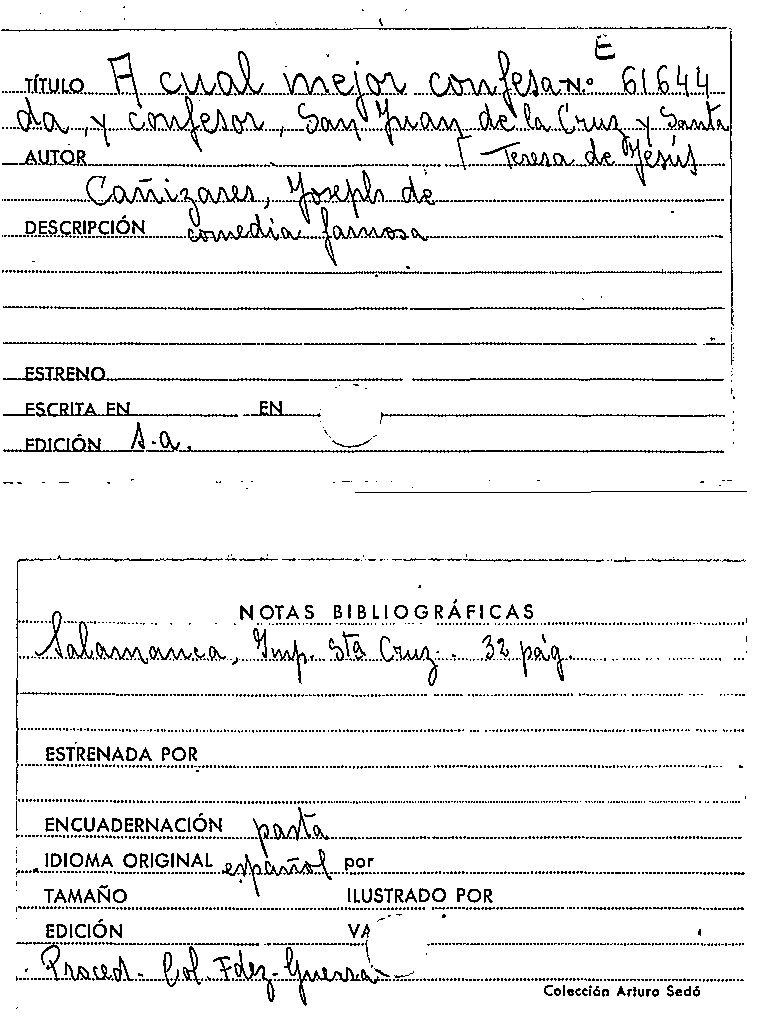 E
TÍTULO A cual mejor confesa N.º 61644
da, y confesor, San Juan de la Cruz y Santa
AUTOR [ Teresa de Jesús
Cañizares, Joseph de
DESCRIPCIÓN comedia famosa
ESTRENO
ESCRITA EN EN
EDICIÓN s.a.
NOTAS BIBLIOGRÁFICAS
Salamanca, Imp. Sta Cruz. 32 pág.
ESTRENADA POR
ENCUADERNACIÓN pasta
IDIOMA ORIGINAL español por
TAMAÑO ILUSTRADO POR
EDICIÓN VA
Proced. Col. Fdez-Guerra
Colección Arturo Sedó